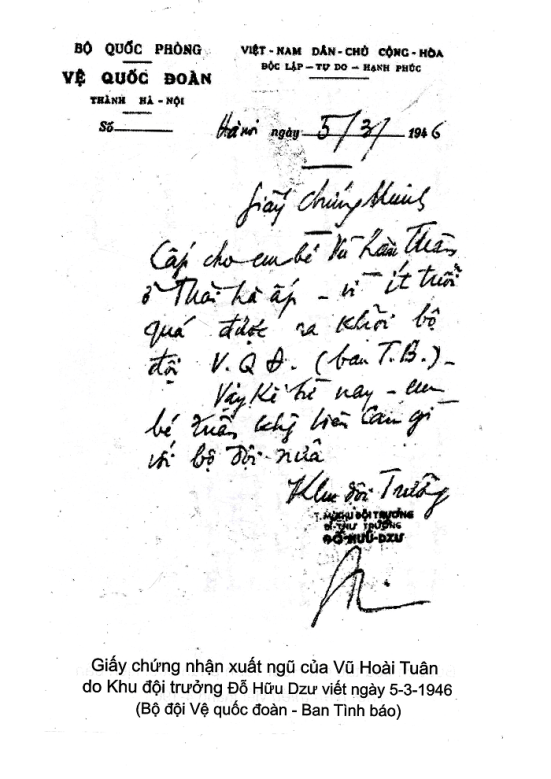 BỘ QUỐC PHÒNG
VỆ QUỐC ĐOÀN
THÀNH HÀ-NỘI
Số
VIỆT-NAM DÂN-CHỦ CỘNG-HÒA
ĐỘC LẬP - TỰ DO - HẠNH PHÚC
Hànội ngày 5/3/1946
Giấy chứng Minh
Cấp cho em bé Vũ Hoài Tuân
ở Thái hà ấp - vì ít tuổi
quá được ra khỏi bộ
đội V.Q.Đ. (ban T.B.)-
Vậy kể từ nay - em
bé Tuân không liên can gì
với bộ đội nữa
Khu đội Trưởng
KHU ĐỘI TRƯỞNG
ĐỖ-HỮU-DZƯ
Giấy chứng nhận xuất ngũ của Vũ Hoài Tuân
do Khu đội trưởng Đỗ Hữu Dzư viết ngày 5-3-1946
(Bộ đội Vệ quốc đoàn - Ban Tình báo)